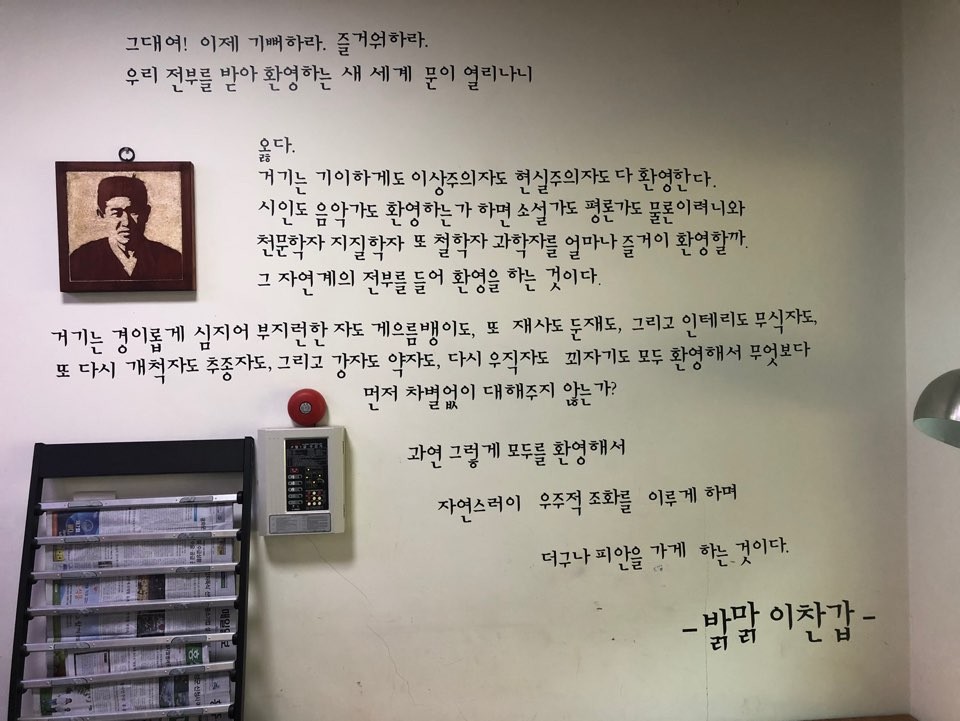 그대여! 이제 기뻐하라. 즐거워하라.
우리 전부를 받아 환영하는 새 세계 문이 열리나니
옳다.
거기는 기이하게도 이상주의자도 현실주의자도 다 환영한다.
시인도 음악가도 환영하는가 하면 소설가도 평론가도 물론이려니와
천문학자 지질학자 또 철학자 과학자를 얼마나 즐거이 환영할까.
그 자연계의 전부를 들어 환영을 하는 것이다.
거기는 경이롭게 심지어 부지런한 자도 게으름뱅이도, 또 재사도 둔재도, 그리고 인테리도 무식자도,
또 다시 개척자도 추종자도, 그리고 강자도 약자도, 다시 우직자도 꾀자기도 모두 환영해서 무엇보다
먼저 차별없이 대해주지 않는가?
과연 그렇게 모두를 환영해서
자연스러이 우주적 조화를 이루게 하며
더구나 피안을 가게 하는 것이다.
-밝맑 이찬갑-